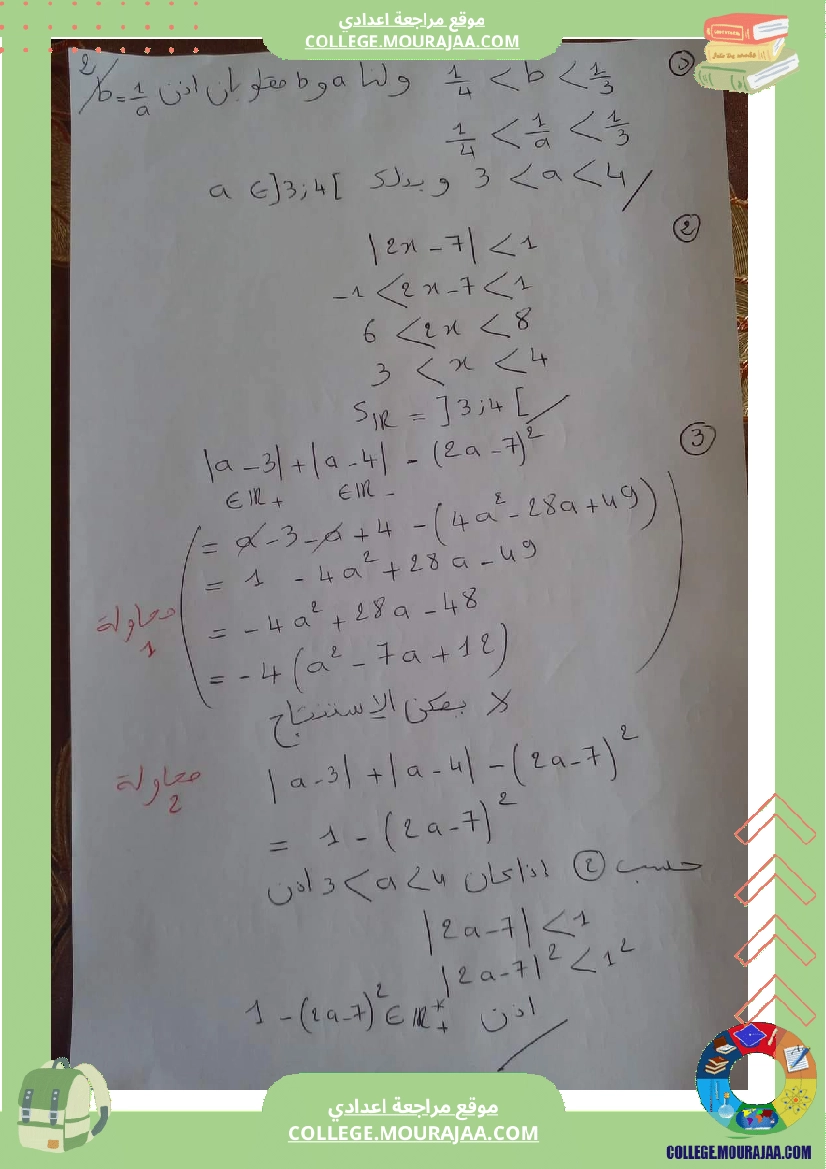 موقع مراجعة اعدادي
COLLEGE.MOURAJAA.COM
① 1/4 < b < 1/3 ولنا a و b مقلوبان اذن b = 1/a
2/
1/4 < 1/a < 1/3
3 < a < 4 وبذلك a ∈ ]3;4[
②
|2x - 7| < 1
-1 < 2x - 7 < 1
6 < 2x < 8
3 < x < 4
S_IR = ]3;4[
③
|a - 3| + |a - 4| - (2a - 7)²
∈ IR+ ∈ IR-
= a - 3 - a + 4 - (4a² - 28a + 49)
= 1 - 4a² + 28a - 49
= -4a² + 28a - 48
= -4(a² - 7a + 12)
محاولة 1
لا يمكن الاستنتاج
محاولة 2
|a - 3| + |a - 4| - (2a - 7)²
= 1 - (2a - 7)²
حسب ② اذا كان 3 < a < 4 اذن
|2a - 7| < 1
|2a - 7|² < 1²
اذن 1 - (2a - 7)² ∈ IR*+
موقع مراجعة اعدادي
COLLEGE.MOURAJAA.COM
COLLEGE.MOURAJAA.COM